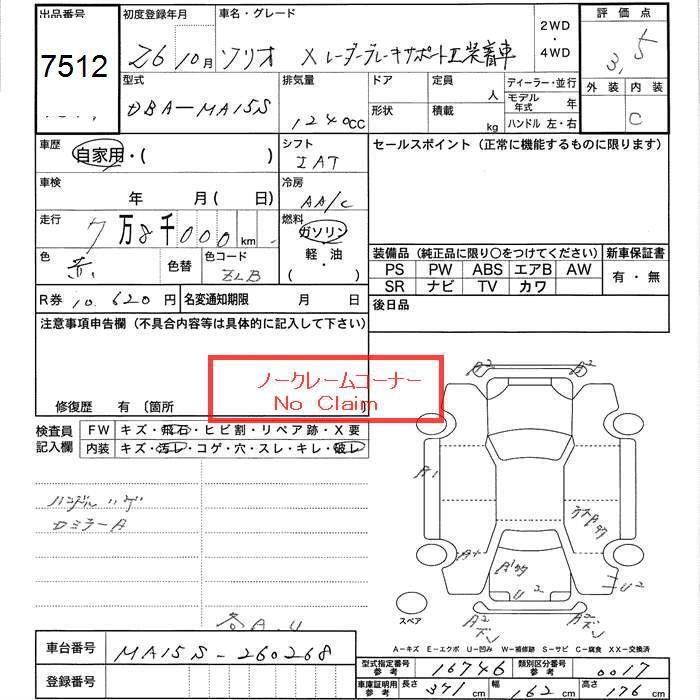 出品番号
7512
初度登録年月
26 10月
車名・グレード
ソリオ X レーダーブレーキサポートⅡ装着車
2WD
・
4WD
評価点
3.5
外装 内装
C
型式
DBA-MA15S
排気量
1240cc
ドア
形状
定員
人
積載
kg
ディーラー・並行
モデル年式 年
ハンドル 左・右
車歴
自家用・( )
シフト
IAT
セールスポイント(正常に機能するものに限ります)
車検
年 月(日)
冷房
AA/C
走行
7万8千000km
燃料
ガソリン
軽油
( )
色
赤
色替
色コード
ZLB
装備品(純正品に限り○をつけてください)
新車保証書
PS PW ABS エアB AW
SR ナビ TV カワ
有・無
R券 10.620円
名変通知期限 月 日
後日品
注意事項申告欄(不具合内容等は具体的に記入して下さい)
ノークレームコーナー
No Claim
修復歴 有 〔箇所 〕
検査員
記入欄
FW キズ・飛石・ヒビ割・リペア跡・X要
内装 キズ・汚レ・コゲ・穴・スレ・キレ・破レ
ハンドルハゲ
DミラーA
各A.U
A2
A1
U2
A2
スペア
A-キズ E-エクボ U-凹み W-補修跡 S-サビ C-腐食 XX-交換済
車台番号
MA15S-260268
登録番号
型式指定番号
参考
16746
類別区分番号
参考
0017
車庫証明用
参考
長さ 371cm 幅 162cm 高さ 176cm